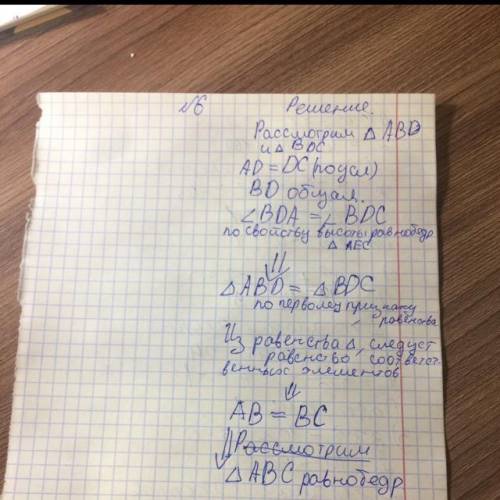 №6 Решение.
Рассмотрим △ ABD
и △ BDC
AD = DC (по усл)
BD общая.
∠BDA = ∠ BDC
по свойству высоты равнобедр
△ AEC
⇓
△ ABD = △ BDC
по первому признаку
равенства
Из равенства △, следуст
равенство соответст-
венных элементов
⇓
AB = BC
⇓ Рассмотрим
△ ABC равнобедр